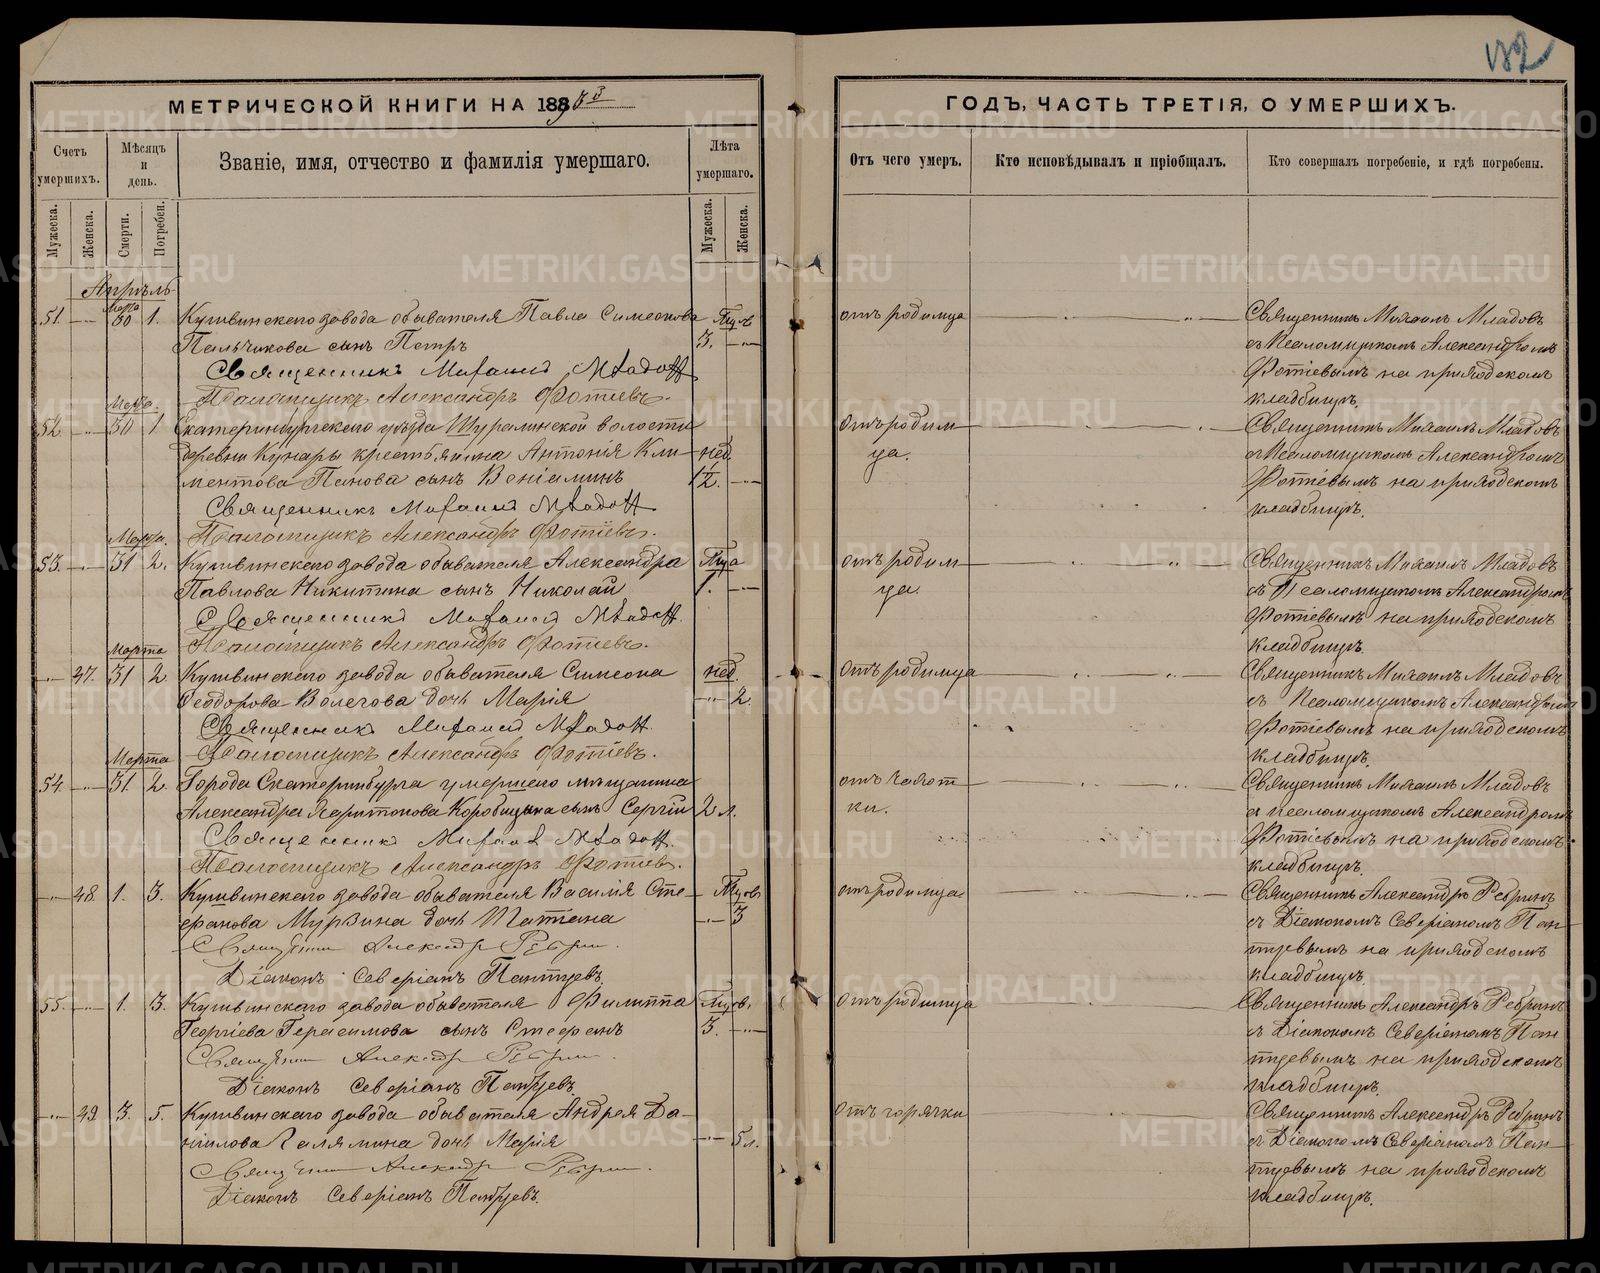 МЕТРИЧЕСКОЙ КНИГИ НА 1893
ГОДЪ, ЧАСТЬ ТРЕТІЯ, О УМЕРШИХЪ.
Счетъ умершихъ.
Мѣсяцъ и день.
Званіе, имя, отчество и фамилія умершаго.
Лѣта умершаго.
Отъ чего умеръ.
Кто исповѣдывалъ и пріобщалъ.
Кто совершалъ погребеніе, и гдѣ погребены.
Мужеска.
Женска.
Смерти.
Погребен.
Мужеска.
Женска.
Апрѣль
Марта
51. 30 1. Кушвинскаго завода обывателя Павла Симеонова
Пальчикова сынъ Петръ 3.
отъ родимца
Священникъ Михаилъ Младовъ
съ Псаломщикомъ Александромъ
Фотіевымъ на приходскомъ
кладбищѣ.
Священникъ Михаилъ Младовъ
Псаломщикъ Александръ Фотіевъ.
Марта.
52 30 1 Екатеринбургскаго уѣзда Шуралинской волости
деревни Кунары крестьянина Антонія Кли- нед.
ментова Панова сынъ Веніаминъ 1/2.
отъ родим
ца.
Священникъ Михаилъ Младовъ
съ Псаломщикомъ Александромъ
Фотіевымъ на приходскомъ
кладбищѣ.
Священникъ Михаилъ Младовъ
Псаломщикъ Александръ Фотіевъ.
Марта.
53. 31 2. Кушвинскаго завода обывателя Александра
Павлова Никитина сынъ Николай 1.
отъ родим
ца.
Священникъ Михаилъ Младовъ
съ Псаломщикомъ Александромъ
Фотіевымъ на приходскомъ
кладбищѣ.
Священникъ Михаилъ Младовъ
Псаломщикъ Александръ Фотіевъ.
Марта
47. 31 2 Кушвинскаго завода обывателя Симеона нед.
Ѳеодорова дочь Марія 2.
отъ родимца
Священникъ Михаилъ Младовъ
съ Псаломщикомъ Александромъ
Фотіевымъ на приходскомъ
кладбищѣ.
Священникъ Михаилъ Младовъ.
Псаломщикъ Александръ Фотіевъ.
Марта
54. 31. 2. Города Екатеринбурга умершего мѣщанина
Александра Харитонова сынъ Сергій 2 л.
отъ чахот
ки.
Священникъ Михаилъ Младовъ
съ псаломщикомъ Александромъ
Фотіевымъ на приходскомъ
кладбищѣ.
Священникъ Михаилъ Младовъ.
Псаломщикъ Александръ Фотіевъ.
48. 1. 3. Кушвинскаго завода обывателя Василія Сте-
фанова Мурзина дочь Татіана 3
отъ родимца
Священникъ Александръ Ребринъ
съ Діакономъ Северіаномъ Пан
тцевымъ на приходскомъ
кладбищѣ.
Священникъ Александръ Ребринъ.
Діаконъ Северіанъ Пантцевъ.
55. 1. 3. Кушвинскаго завода обывателя Филиппа
Георгіева Герасимова сынъ Стефанъ 3.
отъ родимца
Священникъ Александръ Ребринъ
съ Діакономъ Северіаномъ Пан
тцевымъ на приходскомъ
кладбищѣ.
Священникъ Александръ Ребринъ.
Діаконъ Северіанъ Пантцевъ.
49 3. 5. Кушвинскаго завода обывателя Андрея Да-
нилова Галямина дочь Марія 5 л.
отъ горячки
Священникъ Александръ Ребринъ
съ Діакономъ Северіаномъ Пан
тцевымъ на приходскомъ
кладбищѣ.
Священникъ Александръ Ребринъ.
Діаконъ Северіанъ Пантцевъ.
METRIKI.GASO-URAL.RU